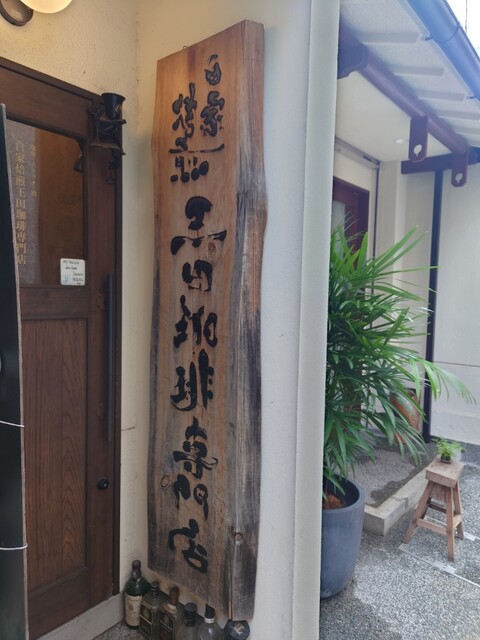 自家焙煎
王田珈琲専門店
自家焙煎王田珈琲専門店